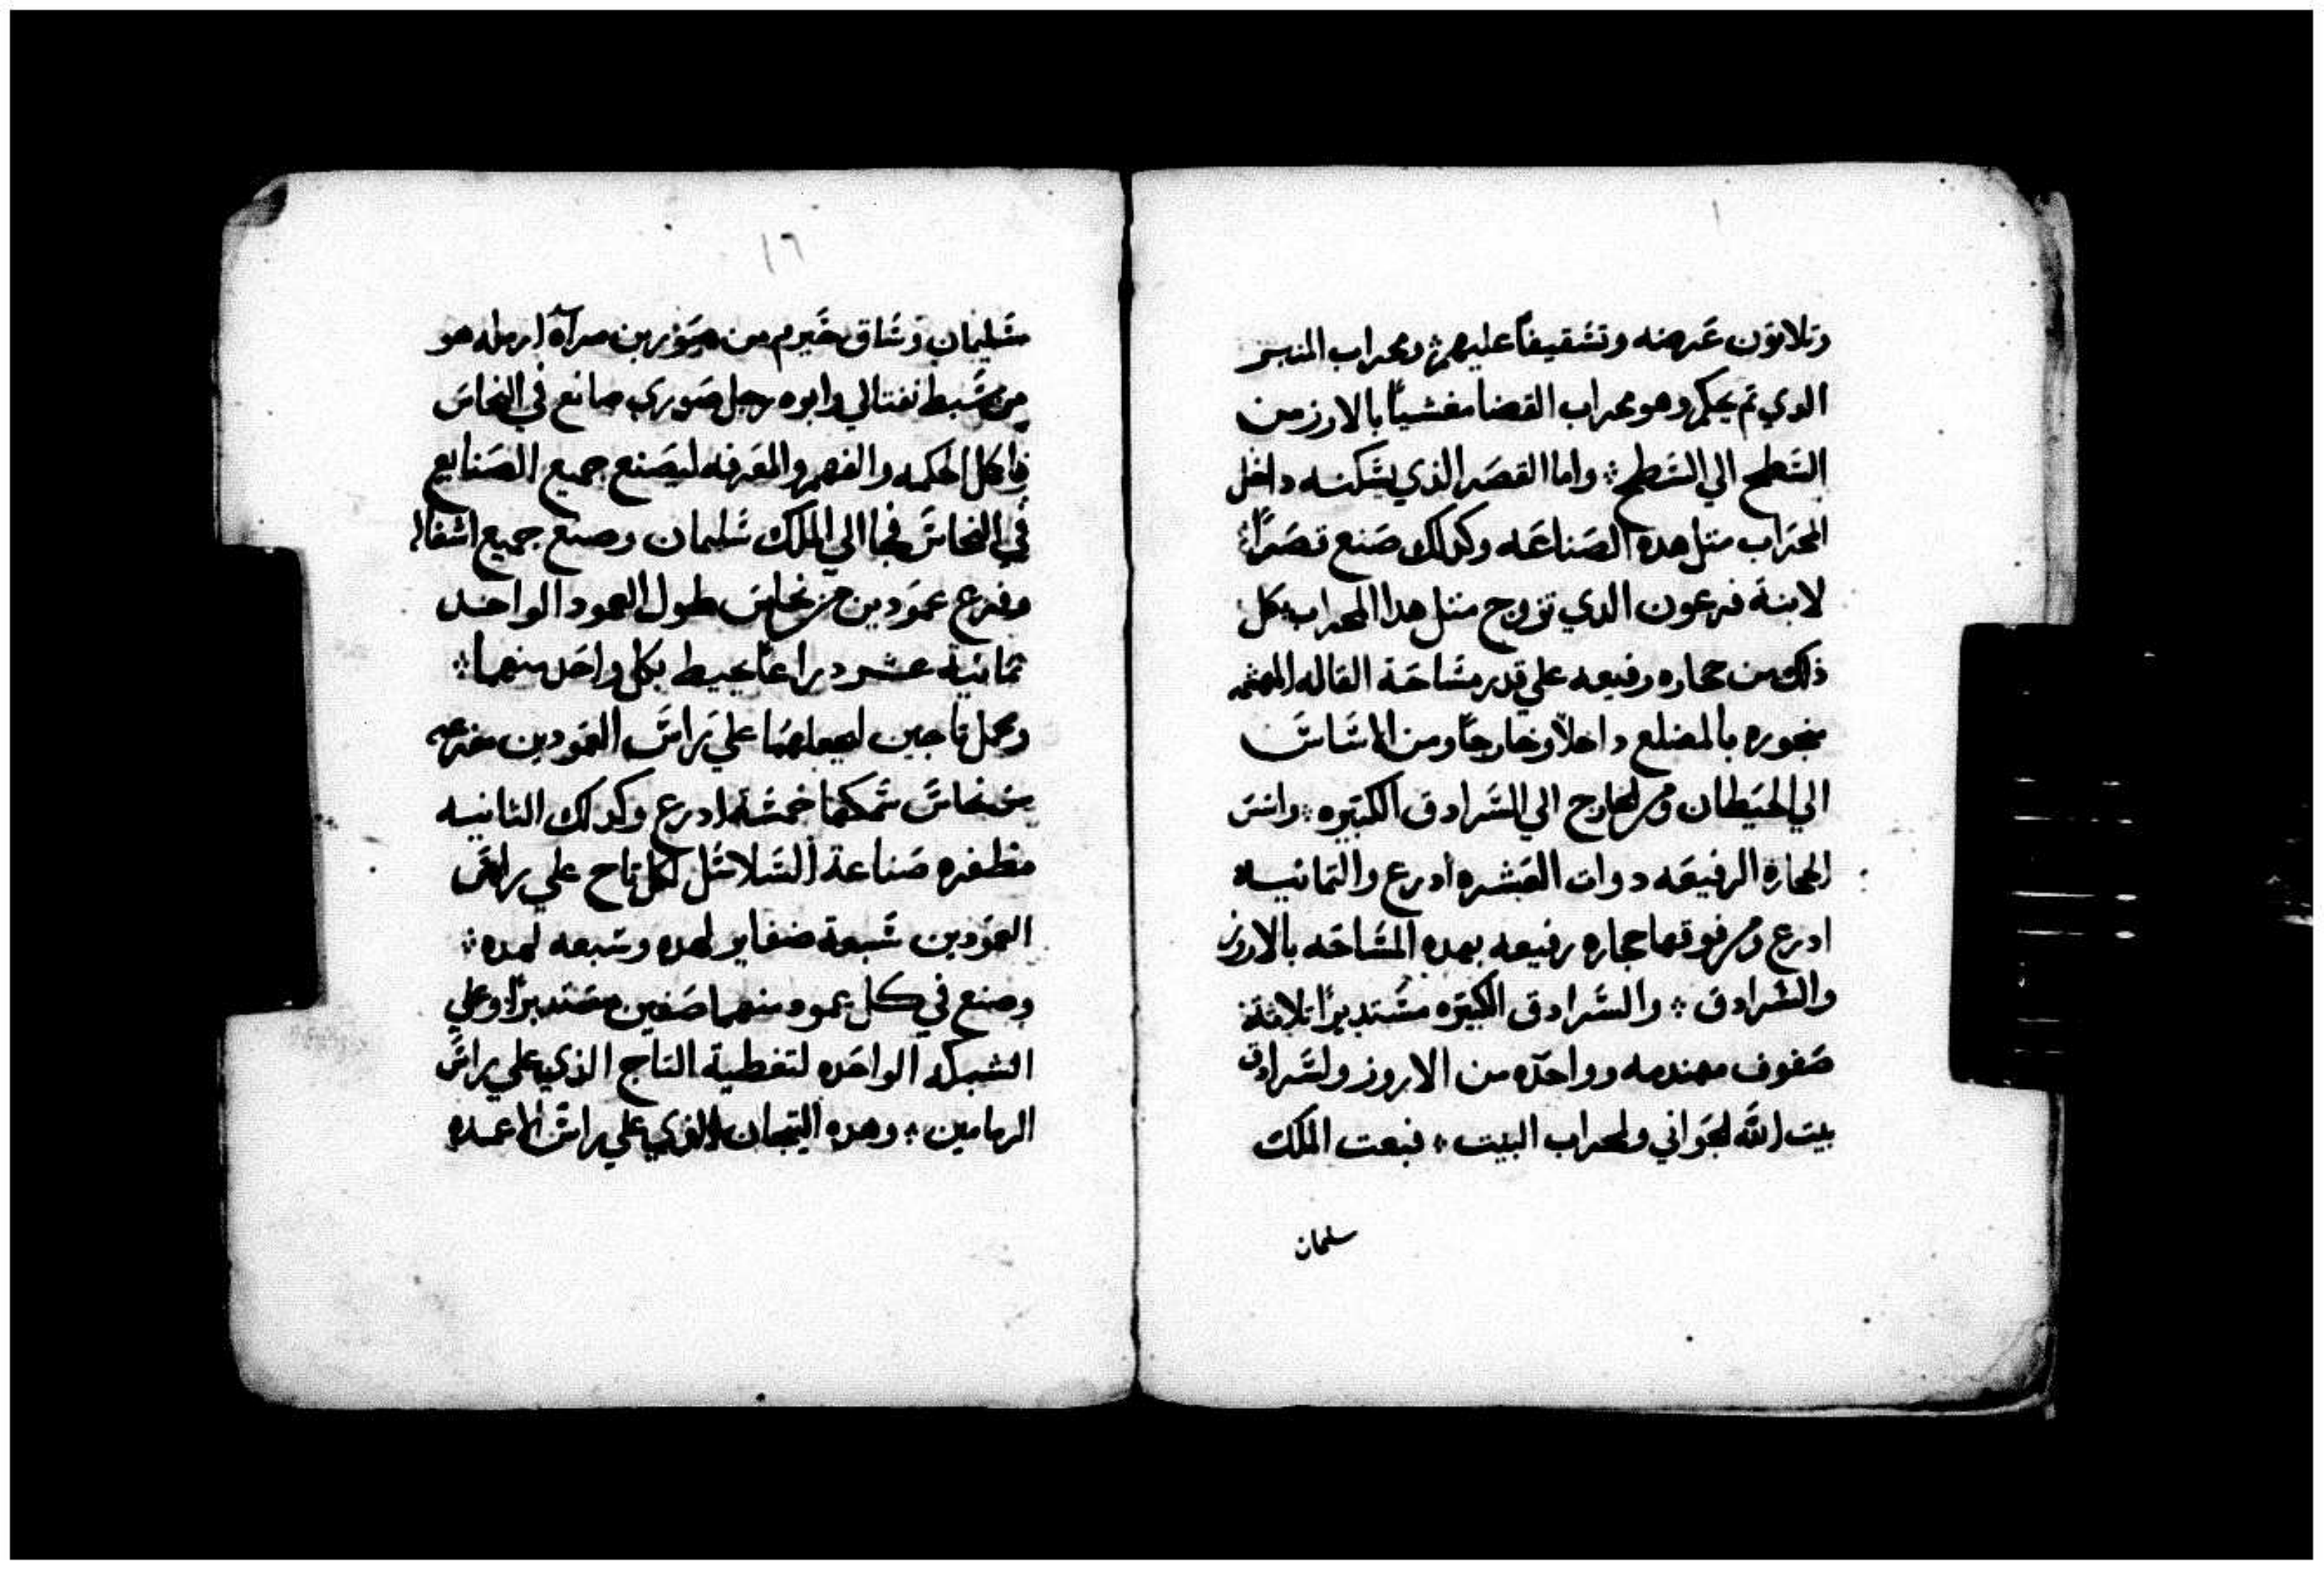 وتلاتون عرضه وتسقيفا عليهم ÷ ومحراب المنبر
الدي تم يحكم وهو محراب القضا مغشيا بالارز من
السطح الي السطح ÷ واما القصر الذي يسكنه داخل
المحراب متل هده الصناعه وكدلك صنع قصرا
لابنة فرعون الدي تزوج متل هدا المحراب ÷ كل
ذلك من حجاره رفيعه علي قدر مساحة القاله
منجوره بالمضلع داخلا وخارجا ومن الاساس
الي الحيطان ومن الخارج الي السرادق الكبيره ÷ واسس
الحجارة الرفيعه دوات العشره ادرع والتمانيه
ادرع ومن فوقها حجاره رفيعه بهده المساحه بالاروز
والسرادق ÷ والسرادق الكبيره مستديرا تلاتة
صفوف مهندمه وواحده من الاروز ولسرادق
بيت الله الجواني ولمحراب البيت ÷ فبعت الملك
سليمان
١٦
سليمان وساق حيرم من صور بن مرآة ارمله هو
من سبط نفتالي وابوه رجل صوري صانع في النحاس
واكل الحكمه والفهم والمعرفه ليصنع جميع الصنايع
في النحاس فجا الي الملك سليمان وصنع جميع اشغاله
وفرع عمودين من نحاس طول العمود الواحد
تمانية عشر دراعا يحيط بكل واحد منهما ÷
وعمل تاجين ليجعلهما علي راس العمودين مفرعه
من نحاس سمكهما خمسة ادرع وكدلك الثانيه
مظفره صناعة السلاسل لكل تاج علي راس
العمودين سبعة ضفاير لهده وسبعه لهده ÷
وصنع في كل عمود منهما صفين مستديرا وعلي
الشبكه الواحده لتغطية التاج الذي علي راس
الرمامين ÷ وهده التيجان الذي علي راس الاعمده